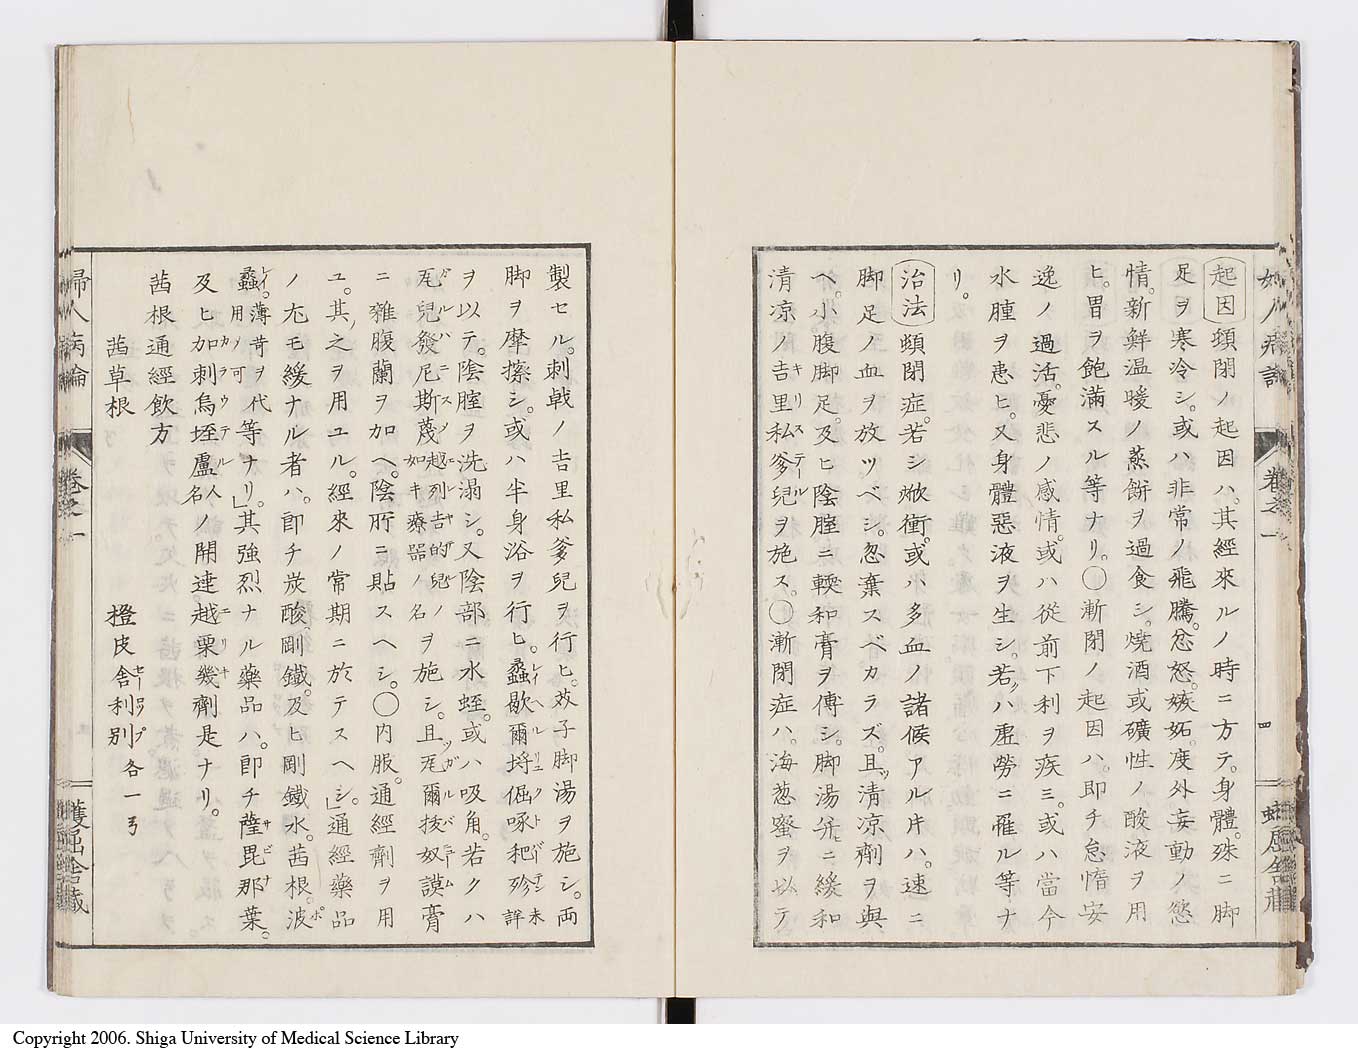 起因 頓閉ノ起因ハ。其經來ルノ時ニ方テ。身體。殊ニ脚
足ヲ寒冷シ。或ハ非常ノ飛騰。忿怒。嫉妬。度外妄動ノ慾
情。新鮮温暖ノ蒸餅ヲ過食シ。燒酒或礦性ノ酸液ヲ用
ヒ。胃ヲ飽滿スル等ナリ。〇漸閉ノ起因ハ。即チ怠惰安
逸ノ過活。憂悲ノ感情。或ハ從前下利ヲ疾ミ。或ハ當今
水腫ヲ患ヒ。又身體惡液ヲ生シ。若クハ虚勞ニ罹ル等ナ
リ。
治法 頓閉症。若シ焮衝。或ハ多血ノ諸候アル片ハ。速ニ
脚足ノ血ヲ放ツベシ。忽棄スベカラズ。且ツ清凉劑ヲ與
ヘ。小腹脚足。及ヒ陰腟ニ輭和膏ヲ傅シ。脚湯并ニ緩和
清凉ノ吉里私爹兒ヲ施ス。〇漸閉症ハ。海葱蜜ヲ以テ
キリステール
四
製セル。刺戟ノ吉里私爹兒ヲ行ヒ。芥子脚湯ヲ施シ。両
脚ヲ摩擦シ。或ハ半身浴ヲ行ヒ。蠡歇爾埓倔啄耙殄 未詳
ヲ以テ。陰腟ヲ洗溻シ。又陰部ニ水蛭。或ハ吸角。若クハ
瓦兒發尼斯蔑越列吉的兒ノ如キ療器ノ名ヲ施シ。且瓦爾抜奴謨膏
ニ雜腹蘭ヲ加ヘ。陰所ニ貼スヘシ。〇内服。通經劑ヲ用
ユ。其之ヲ用ユル。經來ノ常期ニ於テスヘシ。」通經藥品
ノ尤モ緩ナル者ハ。即チ炭酸剛鐵。及ヒ剛鐵水。茜根。波
蠡。薄荷ヲ代用ノ可等ナリ。」其強烈ナル藥品ハ。即チ薩毘那葉。
及ヒ加刺烏垤盧人名ノ開達越栗幾劑是ナリ。
茜根通經飲方
茜草根　橙皮舎利別 各一㐧
婦人病論
卷之一
蠖屈舎藏
Copyright 2006. Shiga University of Medical Science Library